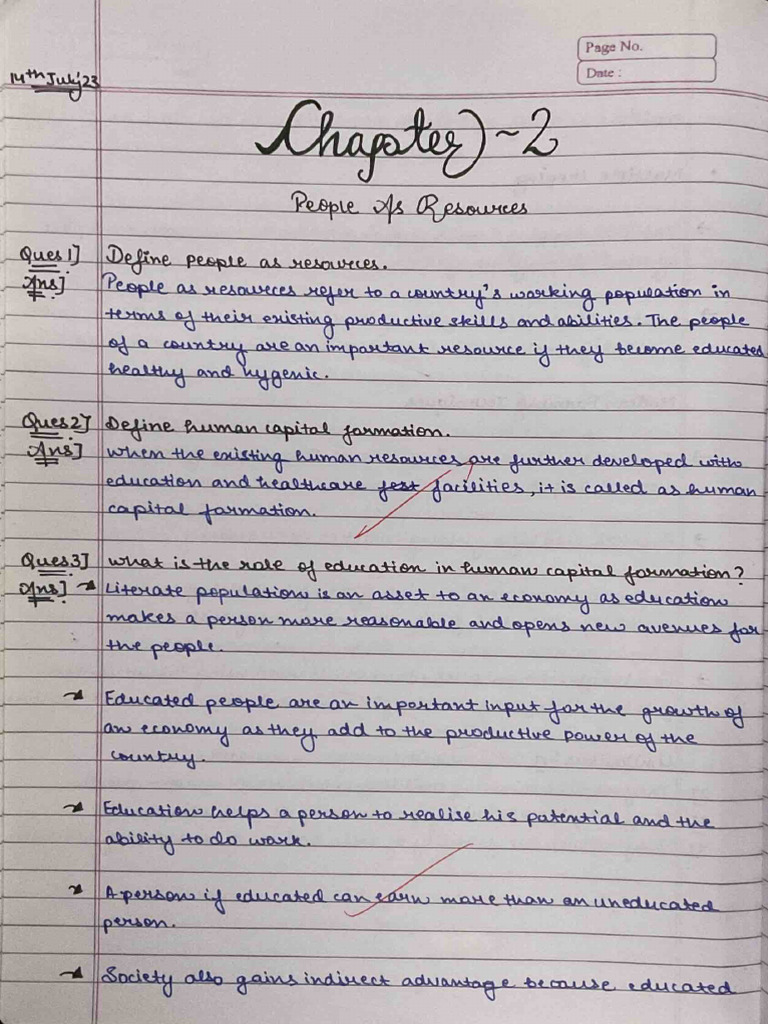 Page No.
Date :
14th July'23
Chapter-2
People As Resources
Ques1] Define people as resources.
Ans] People as resources refer to a country's working population in
terms of their existing productive skills and abilities. The people
of a country are an important resource if they become educated
healthy and hygenic.
Ques2] Define human capital formation.
Ans] When the existing human resources are further developed with
education and healthcare facilities, it is called as human
capital formation.
Ques3] What is the role of education in human capital formation?
Ans] → Literate population is an asset to an economy as education
makes a person more reasonable and opens new avenues for
the people.
→ Educated people are an important input for the growth of
an economy as they add to the productive power of the
country.
→ Education helps a person to realise his potential and the
ability to do work.
→ A person if educated can earn more than an uneducated
person.
→ Society also gains indirect advantage because educated